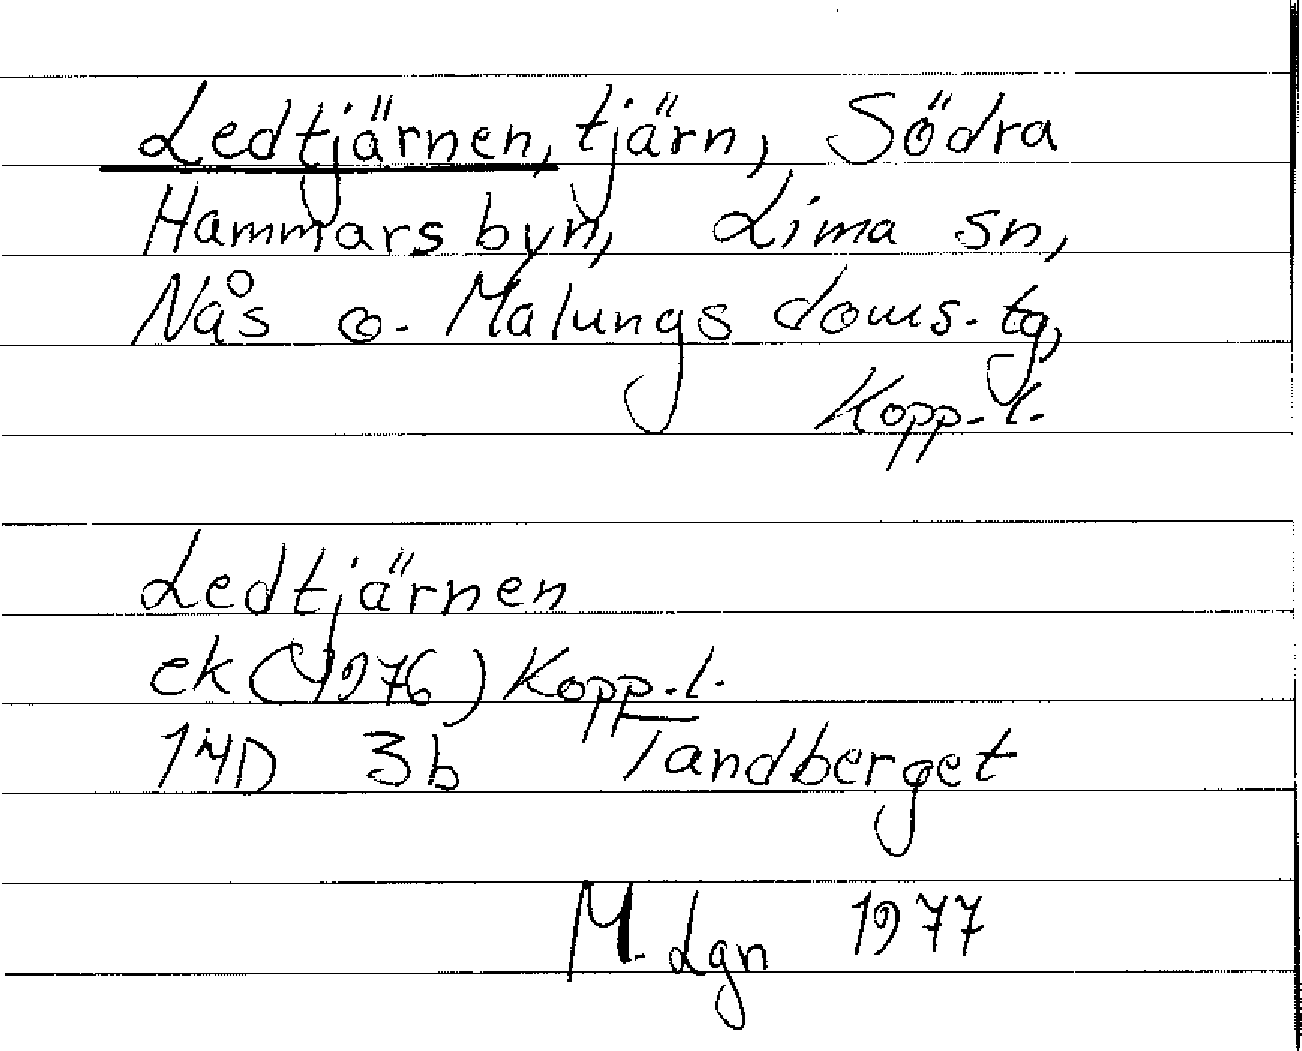 Ledtjärnen, tjärn, Södra
Hammarsbyn, Lima sn,
Nås o. Malungs doms. tg,
Kopp. l.
Ledtjärnen
ek (1976) Kopp. l.
14D 3b Tandberget
M. Lgn 1977